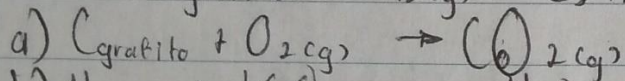 a) C grafito + O2(g) → CO2(g)